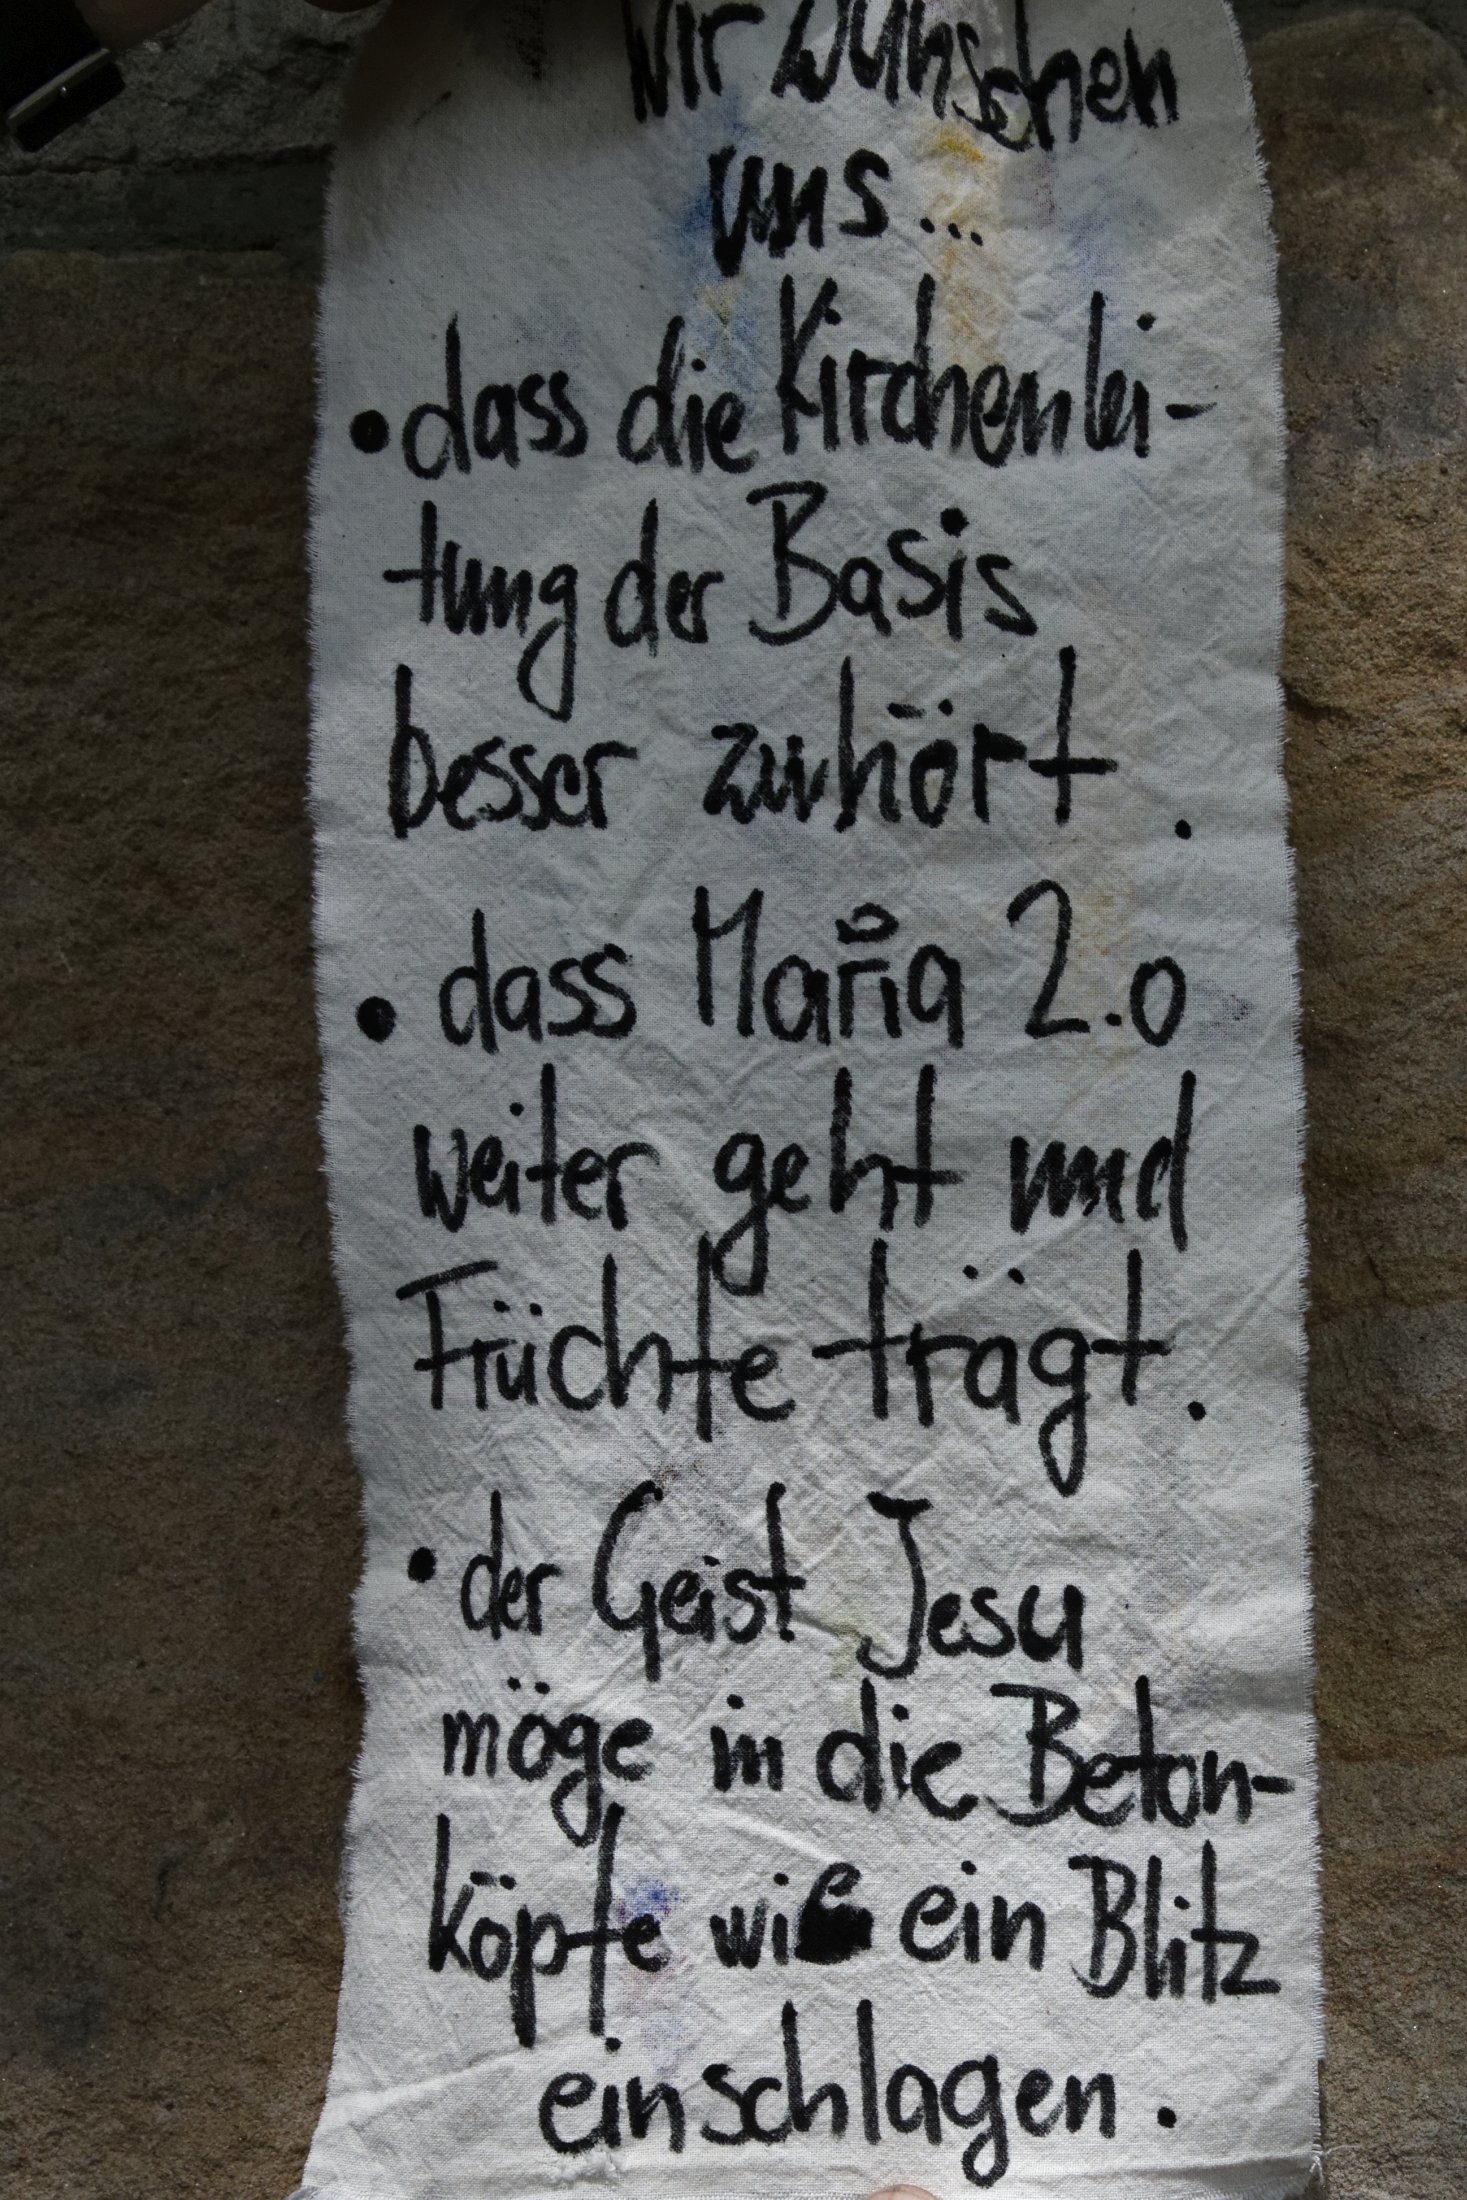 Wir wünschen
uns...
• dass die Kirchenlei-
tung der Basis
besser zuhört.
• dass Maria 2.0
weiter geht und
Früchte trägt.
• der Geist Jesu
möge in die Beton-
köpfe wie ein Blitz
einschlagen.